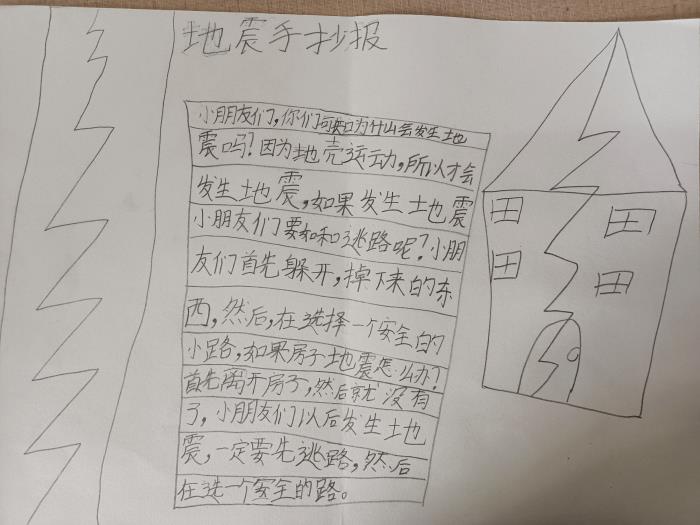 地震手抄报
小朋友们,你们知道为什么会发生地
震吗?因为地壳运动,所以才会
发生地震,如果发生地震
小朋友们要如和逃路呢?小朋
友们首先躲开,掉下来的东
西,然后,在选择一个安全的
小路,如果房子地震怎么办?
首先离开房子,然后就没有
了,小朋友们以后发生地
震,一定要先逃路,然后
在选一个安全的路。